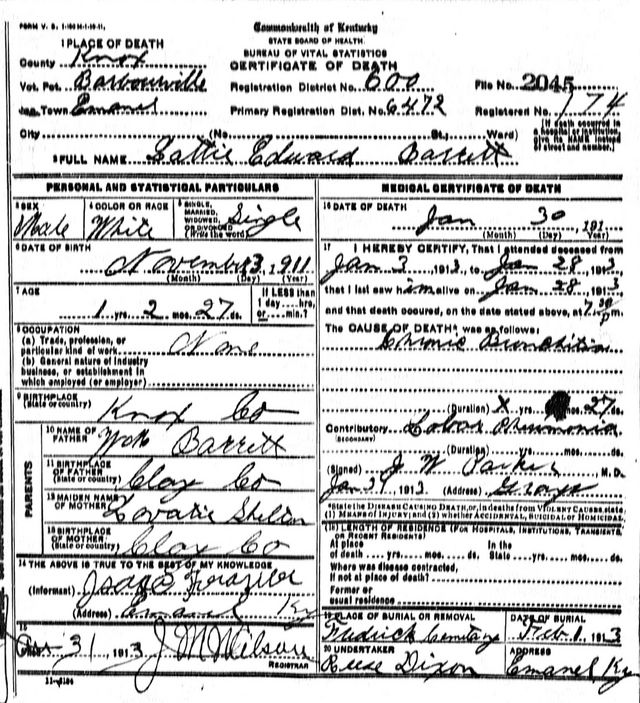 FORM V. S. 1-
Commonwealth of Kentucky
STATE BOARD OF HEALTH.
BUREAU OF VITAL STATISTICS
CERTIFICATE OF DEATH
1 PLACE OF DEATH
County Knox
Vot. Pct. Barbourville
Inc. Town Emanel
City (No. St.; Ward)
Registration District No. 600
Primary Registration Dist. No. 6472
File No. 2045
Registered No. 174
(If death occurred in a hospital or institution, give its NAME instead of street and number.)
2 FULL NAME Edward Barrett
PERSONAL AND STATISTICAL PARTICULARS
3 SEX Male
4 COLOR OR RACE White
5 SINGLE, MARRIED, WIDOWED, OR DIVORCED (Write the word) Single
6 DATE OF BIRTH November 3, 1911
(Month) (Day) (Year)
7 AGE 1 yrs. 2 mos. 27 ds.
If LESS than 1 day....hrs. or....min.?
8 OCCUPATION
(a) Trade, profession, or particular kind of work None
(b) General nature of industry business, or establishment in which employed (or employer)
9 BIRTHPLACE (State or country) Knox Co
PARENTS
10 NAME OF FATHER Barrett
11 BIRTHPLACE OF FATHER (State or country) Clay Co
12 MAIDEN NAME OF MOTHER Shelton
13 BIRTHPLACE OF MOTHER (State or country) Clay Co
14 THE ABOVE IS TRUE TO THE BEST OF MY KNOWLEDGE
(Informant)
(Address) Emanel Ky
15
31 1913 J M Wilson
REGISTRAR
MEDICAL CERTIFICATE OF DEATH
16 DATE OF DEATH Jan 30 191
(Month) (Day) (Year)
17 I HEREBY CERTIFY, That I attended deceased from
Jan 3, 1913, to Jan 28, 1913
that I last saw him alive on Jan 28, 1913
and that death occured, on the date stated above, at 7.30 pm.
The CAUSE OF DEATH* was as follows:
Chronic Bronchitis
(Duration) X yrs. mos. 27 ds.
Contributory Lobar Pneumonia
(SECONDARY)
(Duration) yrs. mos. ds.
(Signed) J W Parker M.D.
Jan 31 1913 (Address) Grays
*State the DISEASE CAUSING DEATH, or, in deaths from VIOLENT CAUSES, state, (1) MEANS OF INJURY; and (2) whether ACCIDENTAL, SUICIDAL OR HOMICIDAL.
18 LENGTH OF RESIDENCE (FOR HOSPITALS, INSTITUTIONS, TRANSIENTS, OR RECENT RESIDENTS)
At place of death .... yrs. .... mos. .... ds. In the State .... yrs. .... mos. .... ds.
Where was disease contracted, if not at place of death?
Former or usual residence
19 PLACE OF BURIAL OR REMOVAL Fedrick Cemetary
DATE OF BURIAL Feb. 1, 1913
20 UNDERTAKER Reese Dixon
ADDRESS Emanel Ky